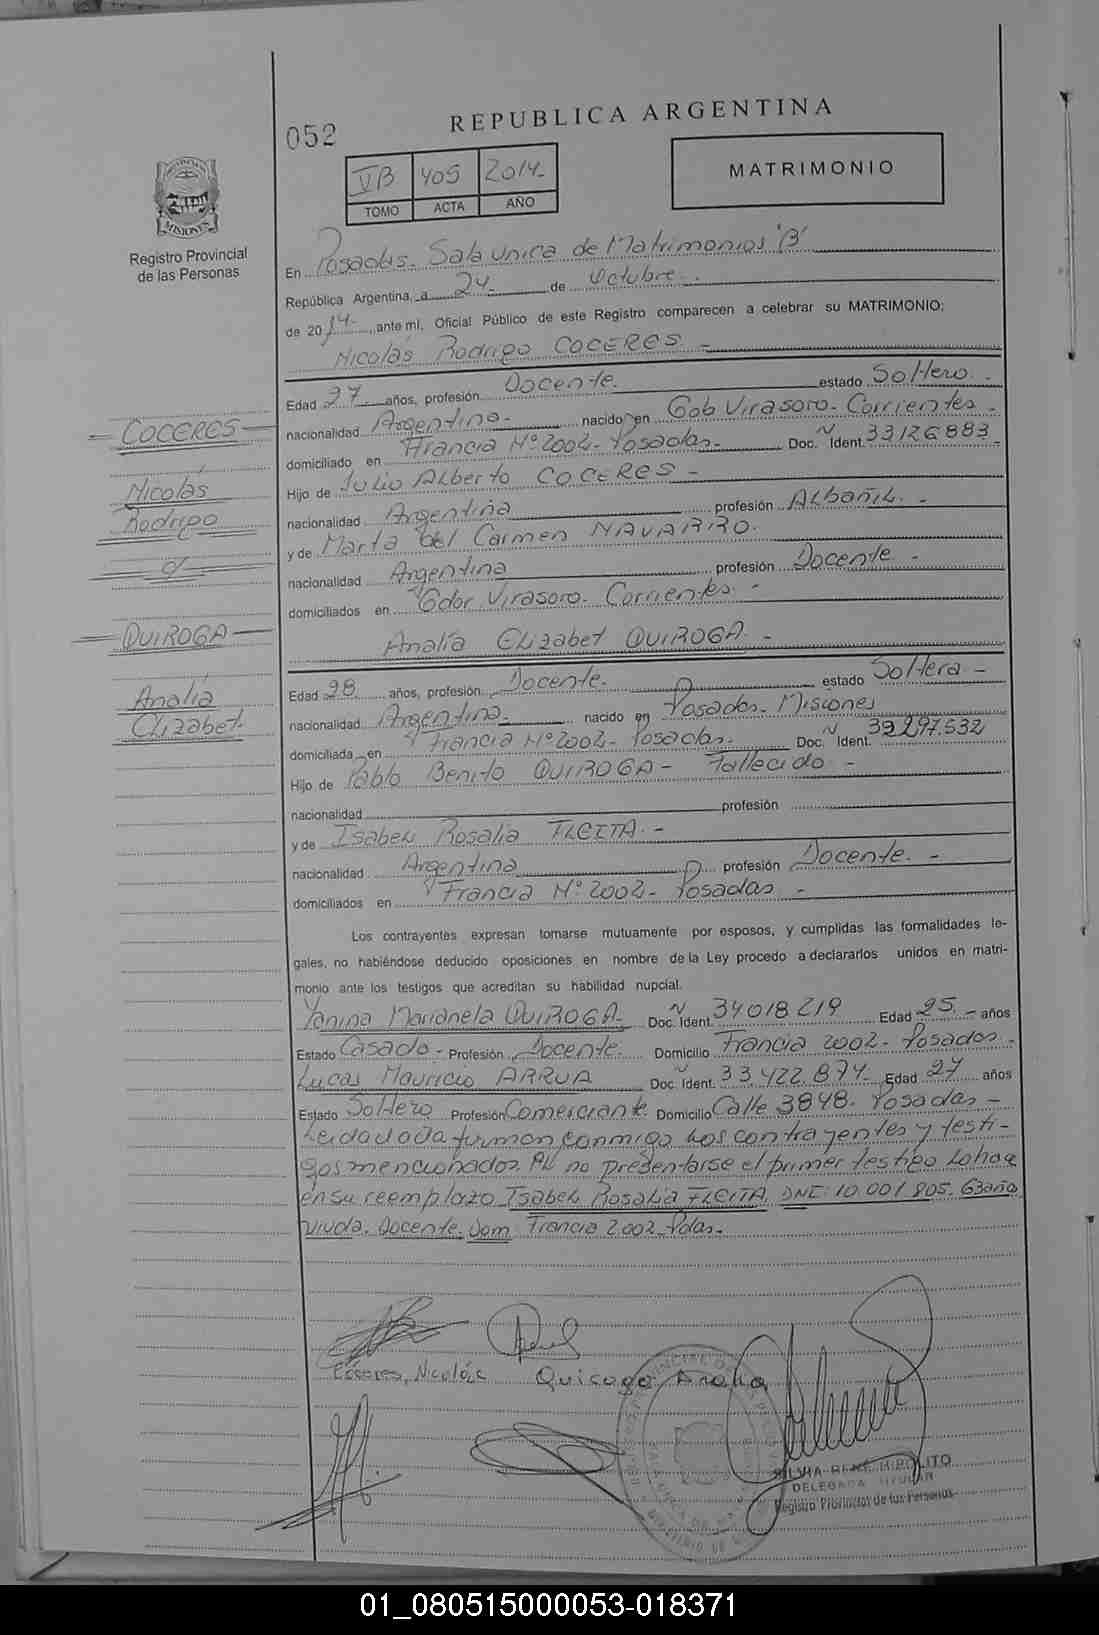 052
REPUBLICA ARGENTINA
VB 405 2014-
TOMO ACTA AÑO
MATRIMONIO
MISIONES
Registro Provincial
de las Personas
En Posadas. Sala única de Matrimonios "B"
República Argentina, a 24 de Octubre
de 2014, ante mí, Oficial Público de este Registro comparecen a celebrar su MATRIMONIO:
Nicolás Rodrigo COCERES -
Edad 27 años, profesión Docente. estado Soltero -
nacionalidad Argentina - nacido en Gob Virasoro - Corrientes -
domiciliado en Francia Nº 2002 - Posadas - Doc. Ident. 33126883 -
Hijo de Julio Alberto COCERES -
nacionalidad Argentina profesión Albañil -
y de Marta del Carmen NAVARRO.
nacionalidad Argentina profesión Docente -
domiciliados en Gdor. Virasoro. Corrientes. -
Analía Elizabet QUIROGA. -
COCERES
Nicolás
Rodrigo
c/
QUIROGA
Analía
Elizabet.
Edad 28 años, profesión Docente. estado Soltera -
nacionalidad Argentina. nacido en Posadas - Misiones
domiciliada en Francia Nº 2002 - Posadas. Doc. Ident. 32297.532
Hijo de Pablo Benito QUIROGA - Fallecido -
nacionalidad profesión
y de Isabel Rosalia FLEITA. -
nacionalidad Argentina profesión Docente. -
domiciliados en Francia Nº 2002 - Posadas -
Los contrayentes expresan tomarse mutuamente por esposos, y cumplidas las formalidades le-
gales, no habiéndose deducido oposiciones en nombre de la Ley procedo a declararlos unidos en matri-
monio ante los testigos que acreditan su habilidad nupcial.
Yanina Marianela QUIROGA. Doc. Ident. 34018219 Edad 25 - años
Estado Casado - Profesión Docente. Domicilio Francia 2002 - Posadas -
Lucas Mauricio ARRUA Doc. Ident. 33.422.874 - Edad 27 años
Estado Soltero Profesión Comerciante. Domicilio Calle 3848. Posadas -
Leida la firman conmigo los contrayentes y testi-
gos mencionados. Al no presentarse el primer testigo lo hace
en su reemplazo Isabel Rosalia FLEITA, DNI: 10.001.805. 63 años
Viuda. Docente. Dom. Francia 2002 - Pdas. -
Cóceres, Nicolás Quiroga Analia
SILVIA RENE HIPOLITO
DELEGADA TITULAR
Registro Provincial de las Personas
01_080515000053-018371